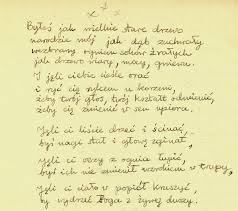 * * *
Byłeś jak wielkie stare drzewo
narodzie mój jak dąb zuchwały
wezbrany ogniem soków źrałych
jak drzewo wiary, mocy, gniewu.
I jęli ciebie cieśle orać
i ryć cię rylcem u korzeni,
żeby twój głos, twój kształt odmienić,
żeby cię zmienić w sen upiora.
Jęli ci liście drzeć i ścinać,
byś nagi stał i głowę zginał,
Jęli ci oczy z ognia łupić,
byś ich nie zmienił wzrokiem w trupy,
Jęli ci ciało w popiół kruszyć,
by wydrzeć Boga z żywej duszy.